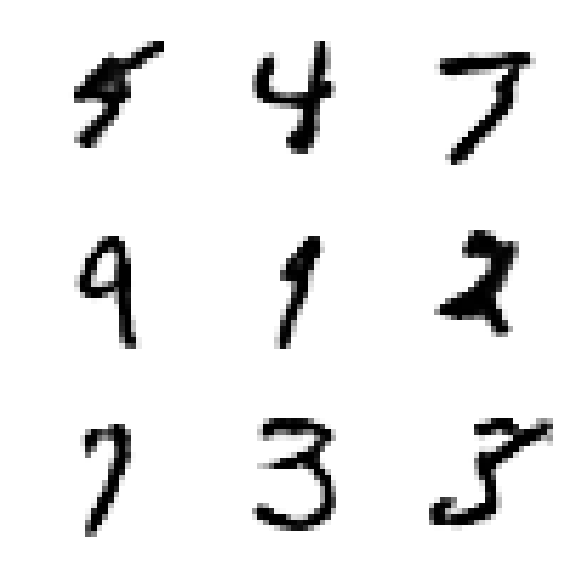 5 4 7
9 9 2
7 3 3